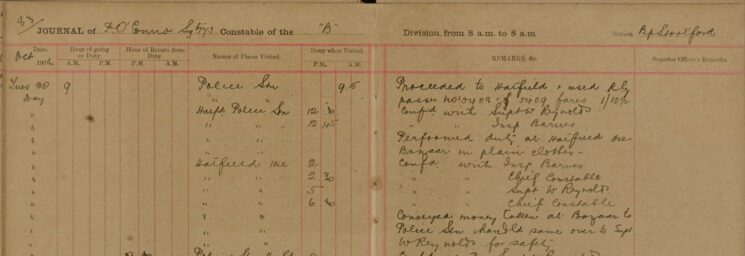 JOURNAL of F. O'Connor Sgt 573 Constable of the "B" Division, from 8 a.m. to 8 a.m Station Bp Stortford
Date. Hour of going on Duty. Hour of Return from Duty. Names of Places Visited. Hour when Visited. REMARKS, &c. Superior Officer's Remarks.
Oct 190 A.M. P.M. A.M. P.M. P.M. A.M.
Tues 9 Police Stn 9.15 Proceeded to Hatfield & used Rly
Day passes No 3408 & 3409 fares 1/10½
" Hatfd Police Stn 12.30 Confd with Supt W Reynolds
" " " " 12.45 " " Insp Barnes
" " " Performed duty at Hatfield Hse
" " " Bazaar in plain clothes.
" Hatfield Hse 2 Confd with Insp Barnes
" " " 2.30 " " Chief Constable
" " " 5 " " Supt W Reynolds
" " " 6.30 " " Chief Constable
" " " Conveyed money taken at Bazaar to
" " " Police Stn & handed same over to Supt
" " " W Reynolds for safety